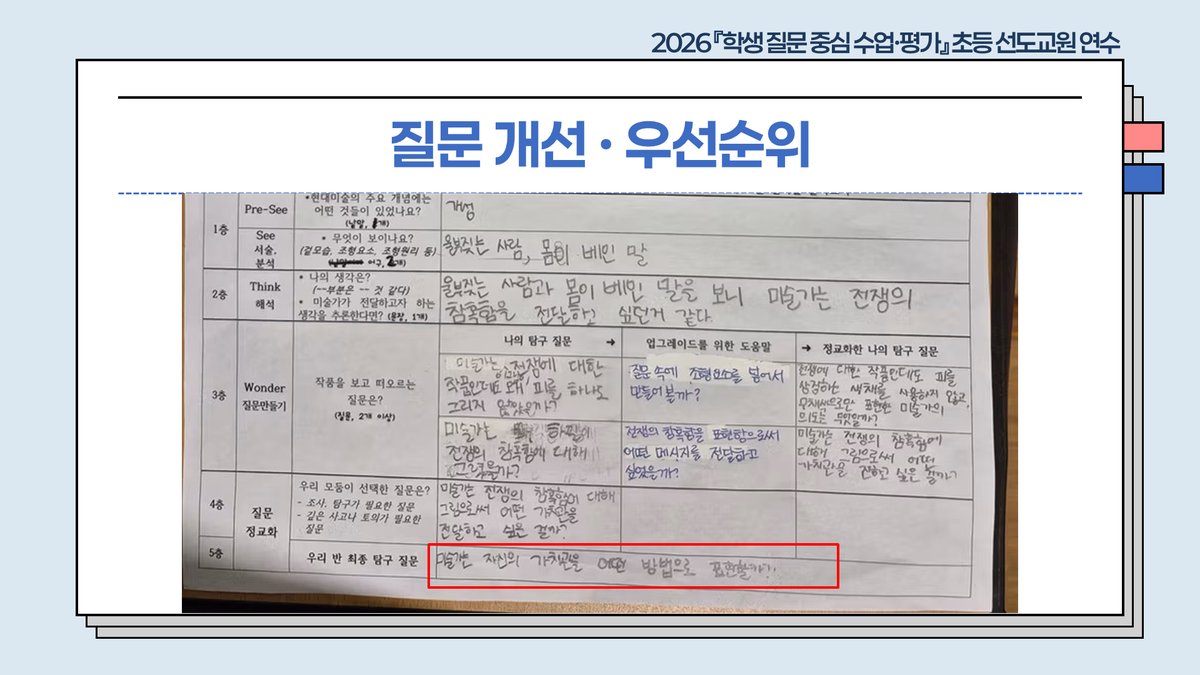 2026『학생 질문 중심 수업·평가』초등 선도교원 연수
질문 개선 · 우선순위
1층
Pre-See
•현대미술의 주요 개념에는
어떤 것들이 있었나요?
(낱말, 1개)
개성
See
서술,
분석
• 무엇이 보이나요?
(겉모습, 조형요소, 조형원리 등)
어구, 2개)
울부짖는 사람, 몸이 베인 말
2층
Think
해석
• 나의 생각은?
(--부분은 -- 것 같다)
• 미술가가 전달하고자 하는
생각을 추론한다면? (문장, 1개)
울부짖는 사람과 몸이 베인 말을 보니 미술가는 전쟁의
참혹함을 전달하고 싶던거 같다.
3층
Wonder
질문만들기
작품을 보고 떠오르는
질문은?
(질문, 2개 이상)
나의 탐구 질문 →
업그레이드를 위한 도움말
→ 정교화한 나의 탐구 질문
미술가는 전쟁에 대한
작품인데도 왜 피를 하나도
그리지 않았을까?
질문 속에 조형요소를 넣어서
만들어 볼까?
전쟁에 대한 작품인데도 피를
상징하는 색채를 사용하지 않고,
무채색으로만 표현한 미술가의
의도는 무엇일까?
미술가는 하필이
전쟁의 참혹함에 대해
그렸을까?
전쟁의 참혹함을 표현함으로써
어떤 메시지를 전달하고
싶었을까?
미술가는 전쟁의 참혹함에
대해 그림으로써 어떤
가치관을 전하고 싶은 걸까?
4층
질문
정교화
우리 모둠이 선택한 질문은?
- 조사, 탐구가 필요한 질문
- 깊은 사고나 토의가 필요한
질문
미술가는 전쟁의 참혹함에 대해
그림으로써 어떤 가치관을
전달하고 싶은 걸까?
5층
우리 반 최종 탐구 질문
미술가는 자신의 가치관을 어떤 방법으로 표현할까?